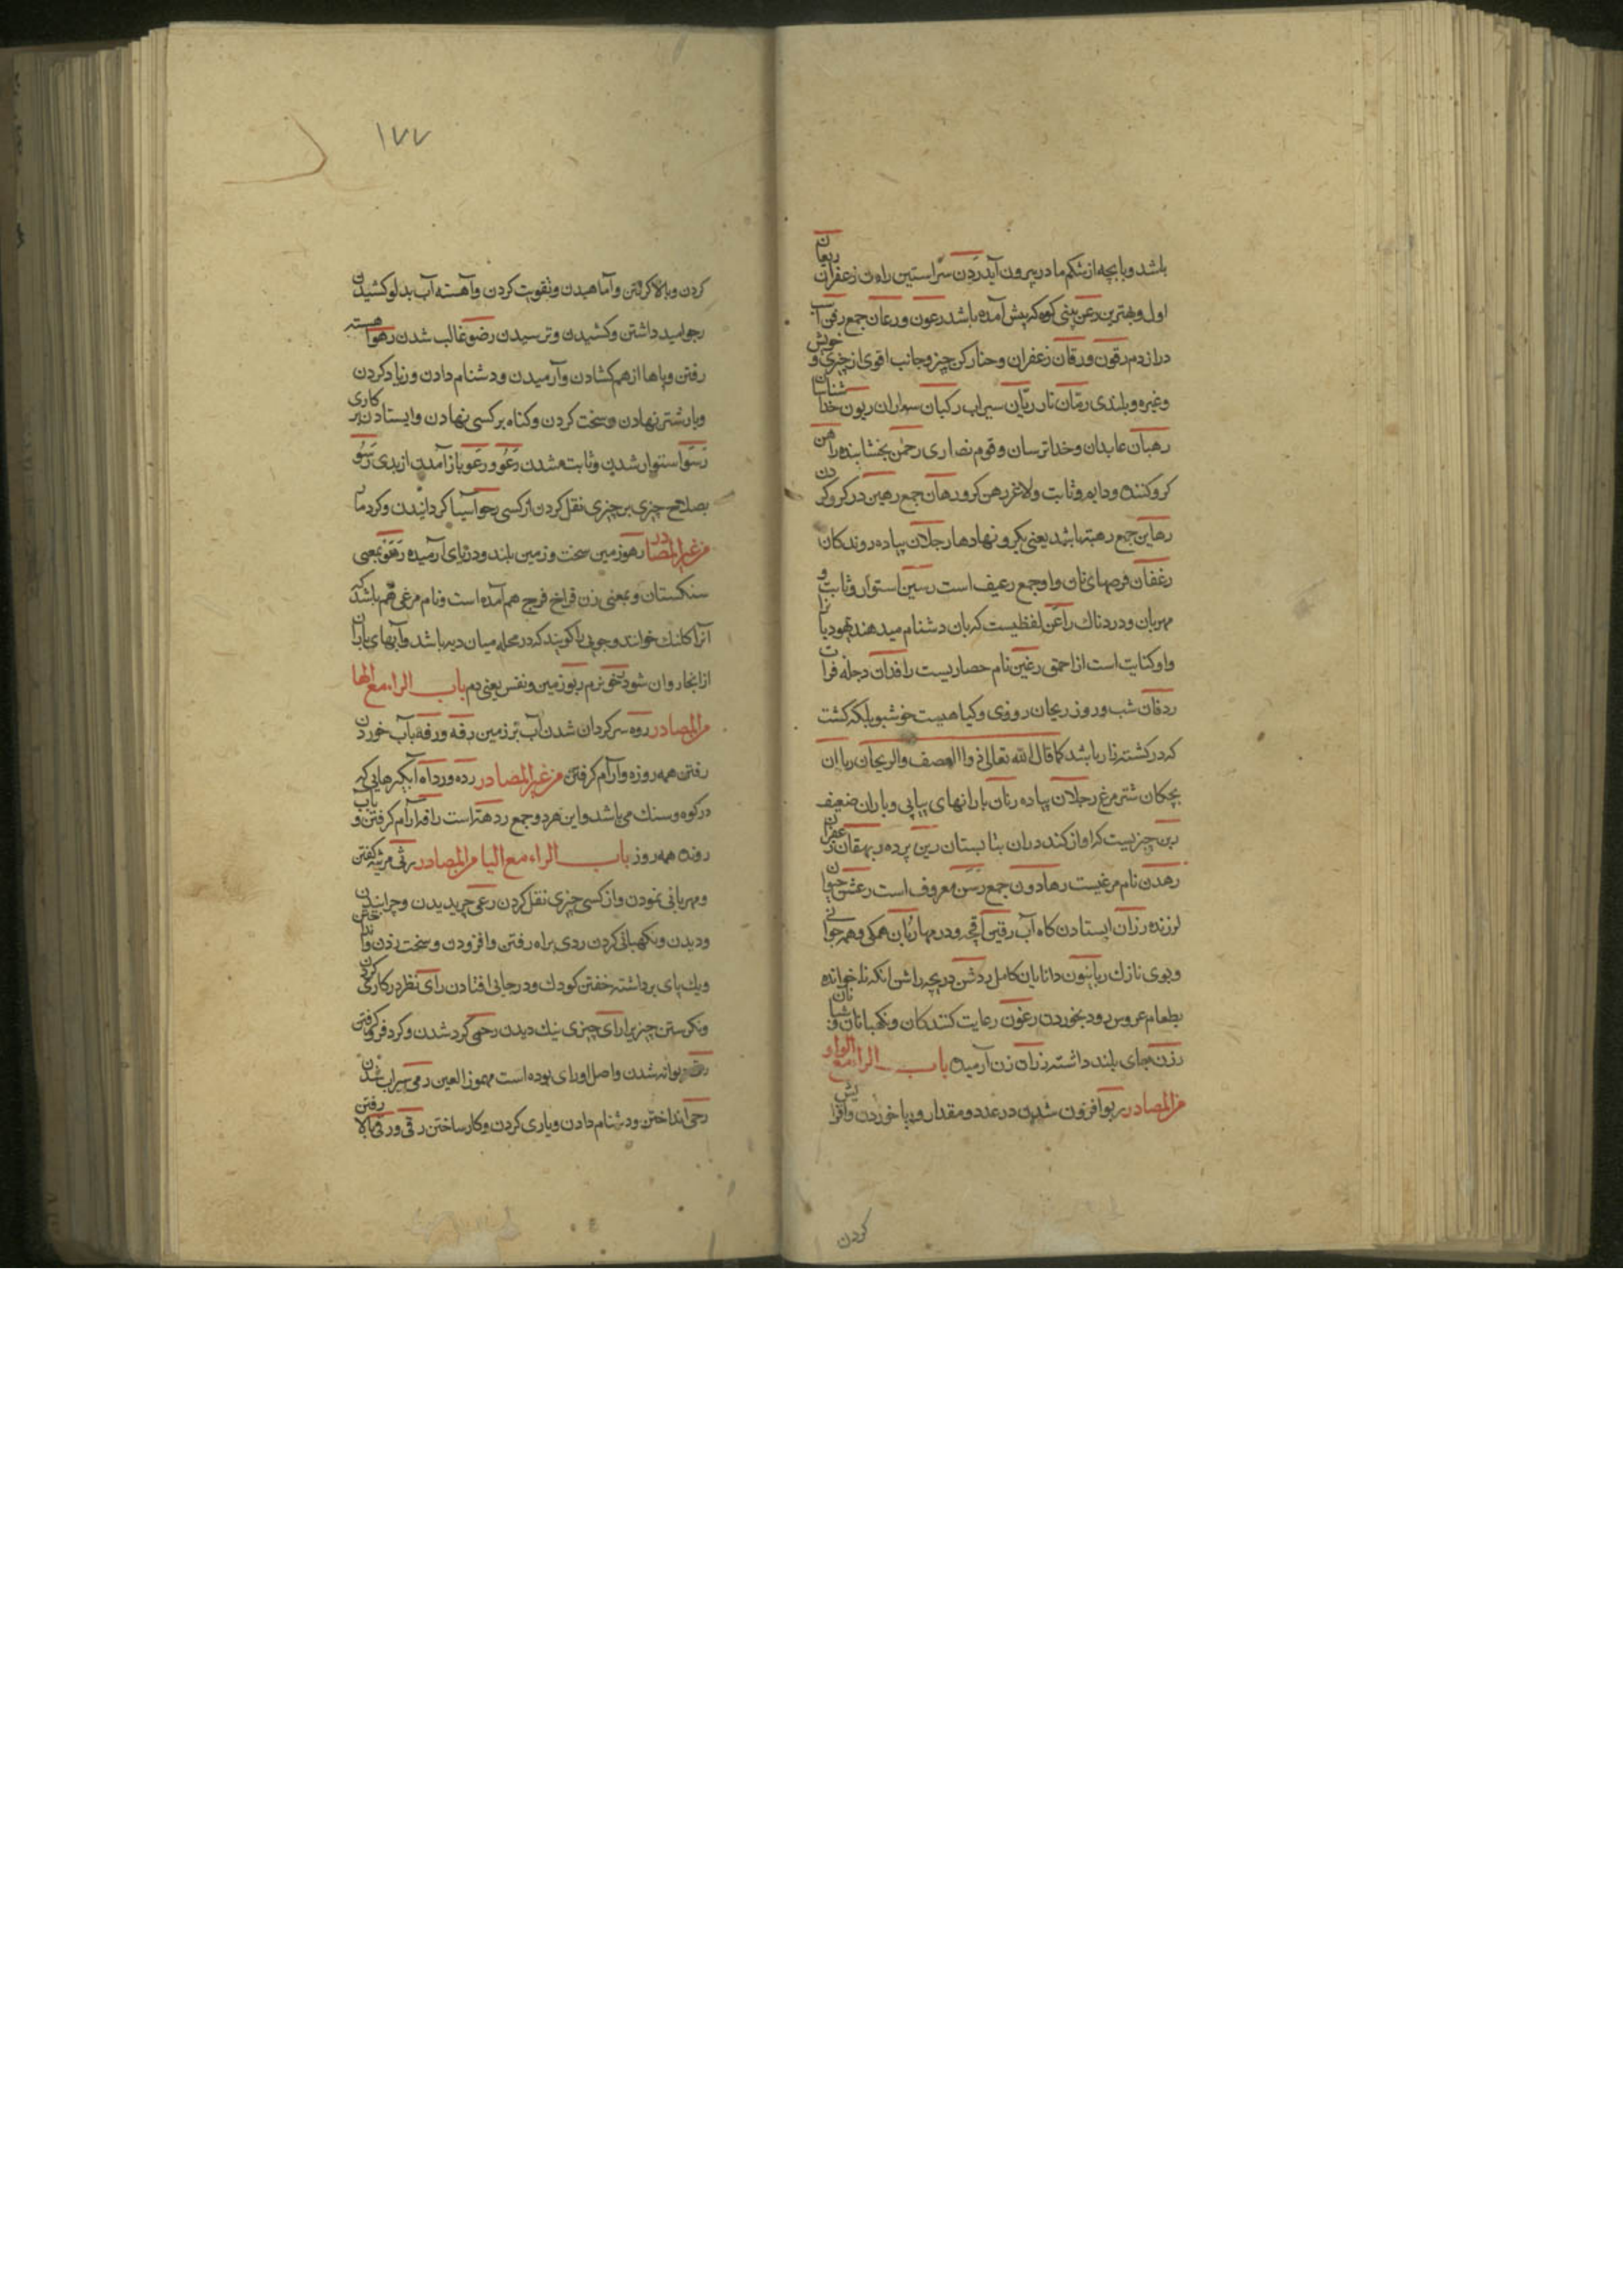 باشد و با بچه از شکم مادر بیرون آید ردن سراستین رادن زعفران ریعان
اول و بهترین رعن بینی کوه که پیش آمده باشد رعون و رعان جمع رفن اسب
دراز دم رقون و رقان زعفران و حنا رکن چیز و جانب اقوی از چیزی و خویش
و غیره و بلندی رمّان نار ریّان سیراب رکبان سواران ربون خدا شناسان
رهبان عابدان و خداترسان و قوم نصاری رحمن بخشاینده راهن
کرو کننده و دایم و ثابت ولاغر رهن کرو رهان جمع رهین در کرو کردن
رهاین جمع رهینه باشد یعنی بکرو نهادها رجلان پیاده روندکان
رغفان قرصهای نان و او جمع رغیف است رسین استوار و ثابت و
مهربان و دردناک راعن لفظیست که بان دشنام میدهند یهود
واو کنایت است از احمق رعین نام حصاریست رافدان دجله فرات
ردفان شب و روز ریحان روزی و کیاهیست خوشبو بلکه کشت
که در کشته زار باشد کما قال الله تعالی ذوا العصف والریحان
بچکان شتر مرغ رجلان پیاده رنان بارانهای پیاپی و باران ضعیف
چیزیست کراواز کند دران بتابستان رین پرده ریهقان زعفران
رهدن نام مرغیست رهادون جمع رسن معروف است رعشن حیوان
لرزنده رزان ایستادن کاه آب رقین اقچه و درمها ربان همکی و همه جوانی
و بوی نازک ربانیون دانایان کامل ردشن دریچه راشن انکه ناخوانده
بطعام عروس رود بخوردن رعون رعایت کنندکان و نکهبانان و شبانان
رزن جای بلند داشته رزان زن آرمیده باب الراء مع الواو
من المصادر ربو افزون شدن در عدد و مقدار و ربا خوردن و افزایش
کردن
۱۷۷
کردن و بالا کرفتن و آماهیدن و تقویت کردن و آهسته آب بدلو کشیدن
رجو امید داشتن و کشیدن و ترسیدن رضو غالب شدن رهو آهسته
رفتن و پاها از هم کشادن و آرمیدن و دشنام دادن و زیاد کردن
و بار شتر نهادن و سخت کردن و کناه بر کسی نهادن و ایستادن بر کاری
رسو استوار شدن و ثابت شدن رعو و رعو باز آمدن از بدی رسو
بصلاح چیزی بر چیزی نقل کردن از کسی رحو آسیا کردانیدن و کرد مار
من غیر المصادر رهو زمین سخت و زمین بلند و دریای آرمیده رهو بمعنی
سنکستان و بمعنی زن فراخ فرج هم آمده است و نام مرغی هم باشد که
آنرا کلنک خوانند و جویی را کویند که در محله میان دیه باشد و آبهای باران
از انجا روان شود رخو نرم ربو زمین و نفس یعنی دم باب الراء مع الها
من المصادر روه سرکردان شدن آب بر زمین رقه و رفه بآب خوردن
رفتن همه روزه و آرام کرفتن من غیر المصادر رده و رداه آبکیرهایی که
در کوه و سنک می باشد و این هر دو جمع ردهة است رافه آرام کرفتن و بآب
رونده همه روز باب الراء مع الیا من المصادر رثی مرثیه کفتن
و مهربانی نمودن و از کسی چیزی نقل کردن رعی چریدن و چرانیدن
و دیدن و نکهبانی کردن ردی براه رفتن و افزودن و سخت زدن و انداختن
و یک پای برداشته خفتن کودک و در جایی افتادن رای نظر در کار کردن
و نکرستن چیز برا رای چیزی نیک دیدن رحی کرد شدن و کرد فرو کرفتن
دیوانه شدن و اصل او رای بوده است مهموز العین رمی سیراب شدن
رمی انداختن و دشنام دادن و یاری کردن و کار ساختن رقی و رقی ببالا رفتن